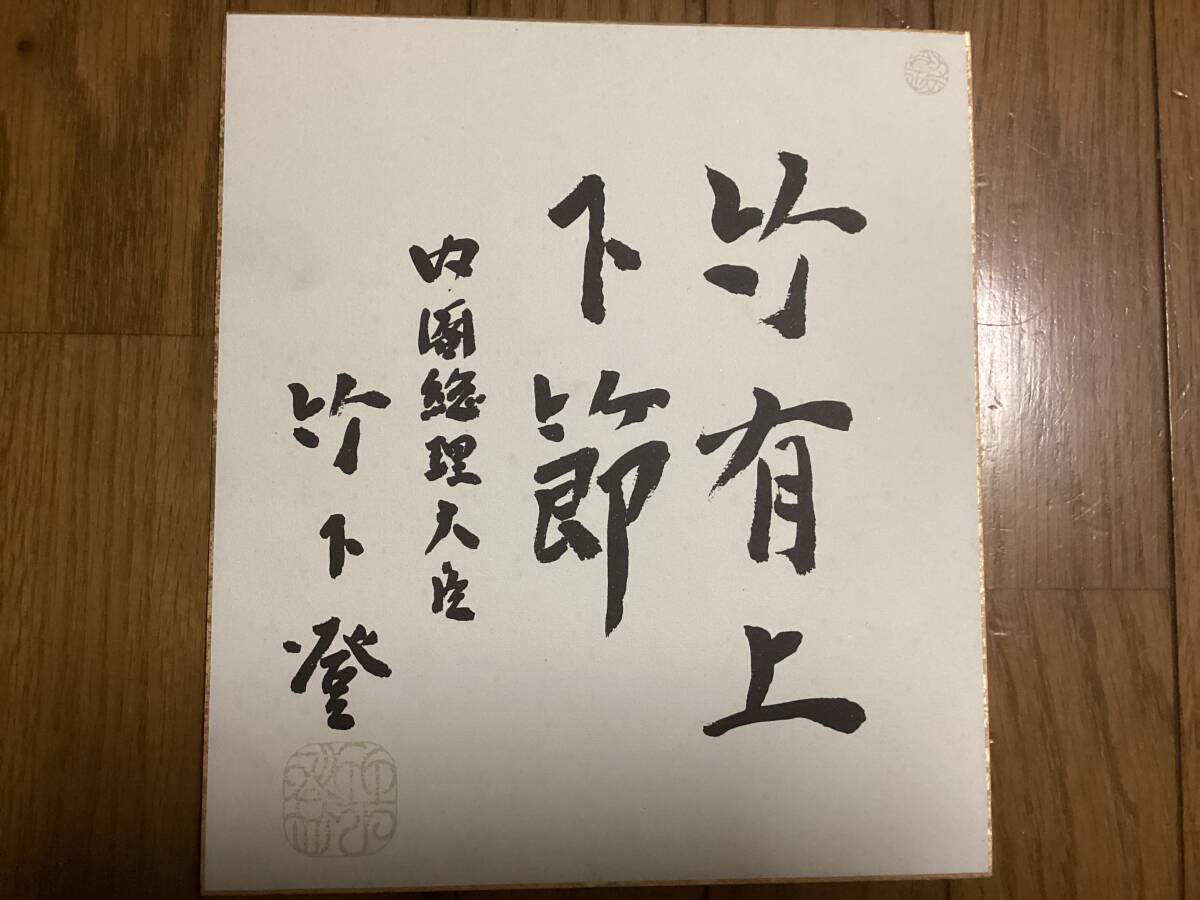 竹有上
下節
内閣総理大臣
竹下登